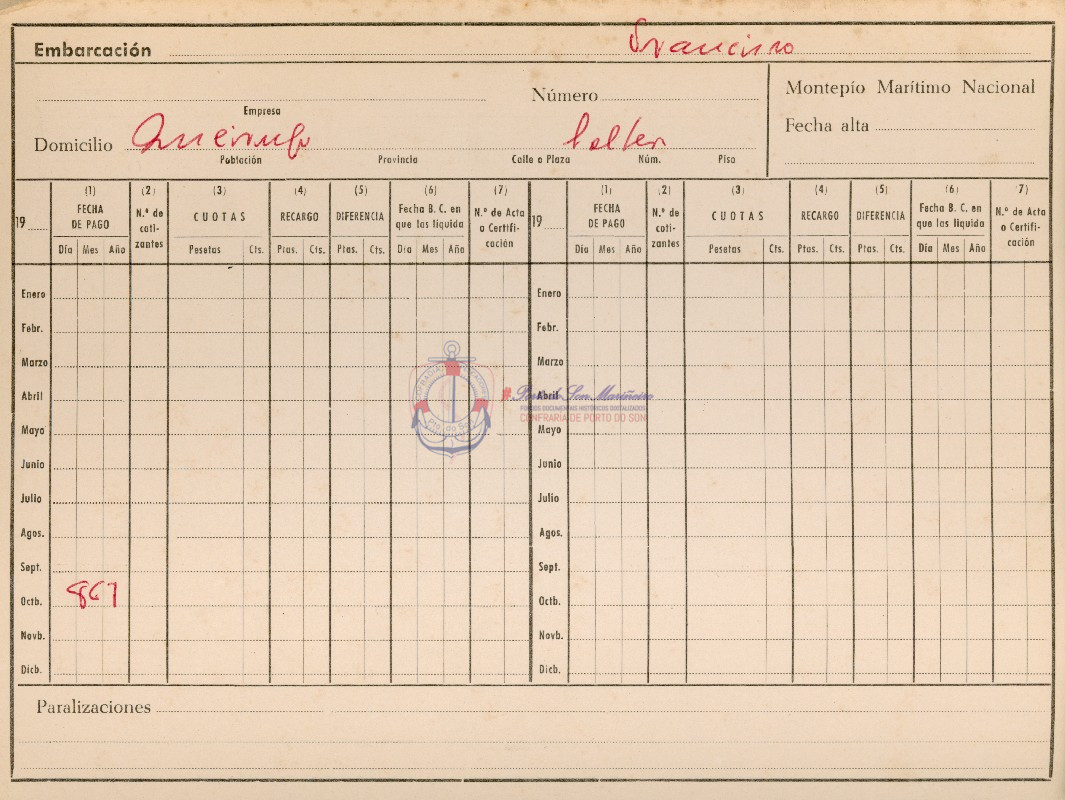 Embarcación Francisco
Empresa
Número
Montepío Marítimo Nacional
Fecha alta
Domicilio Queiruga
Población Provincia Calle o Plaza Núm. Piso
19
(1) (2) (3) (4) (5) (6) (7)
FECHA DE PAGO N.º de coti-zantes CUOTAS RECARGO DIFERENCIA Fecha B. C. en que las liquida N.º de Acta o Certifi-cación
Día Mes Año Pesetas Cts. Ptas. Cts. Ptas. Cts. Día Mes Año
19
(1) (2) (3) (4) (5) (6) 7)
FECHA DE PAGO N.º de coti-zantes CUOTAS RECARGO DIFERENCIA Fecha B. C. en que las liquida N.º de Acta o Certifi-cación
Día Mes Año Pesetas Cts. Ptas. Cts. Ptas. Cts. Día Mes Año
Enero Enero
Febr. Febr.
Marzo Marzo
Abril Abril
# Porto do Son Mariñeiro
FONDOS DOCUMENTAIS HISTÓRICOS DIXITALIZADOS
CONFRARÍA DE PORTO DO SON
Mayo Mayo
Junio Junio
Julio Julio
Agos. Agos.
Sept. Sept.
Octb. 867 Octb.
Novb. Novb.
Dicb. Dicb.
Paralizaciones